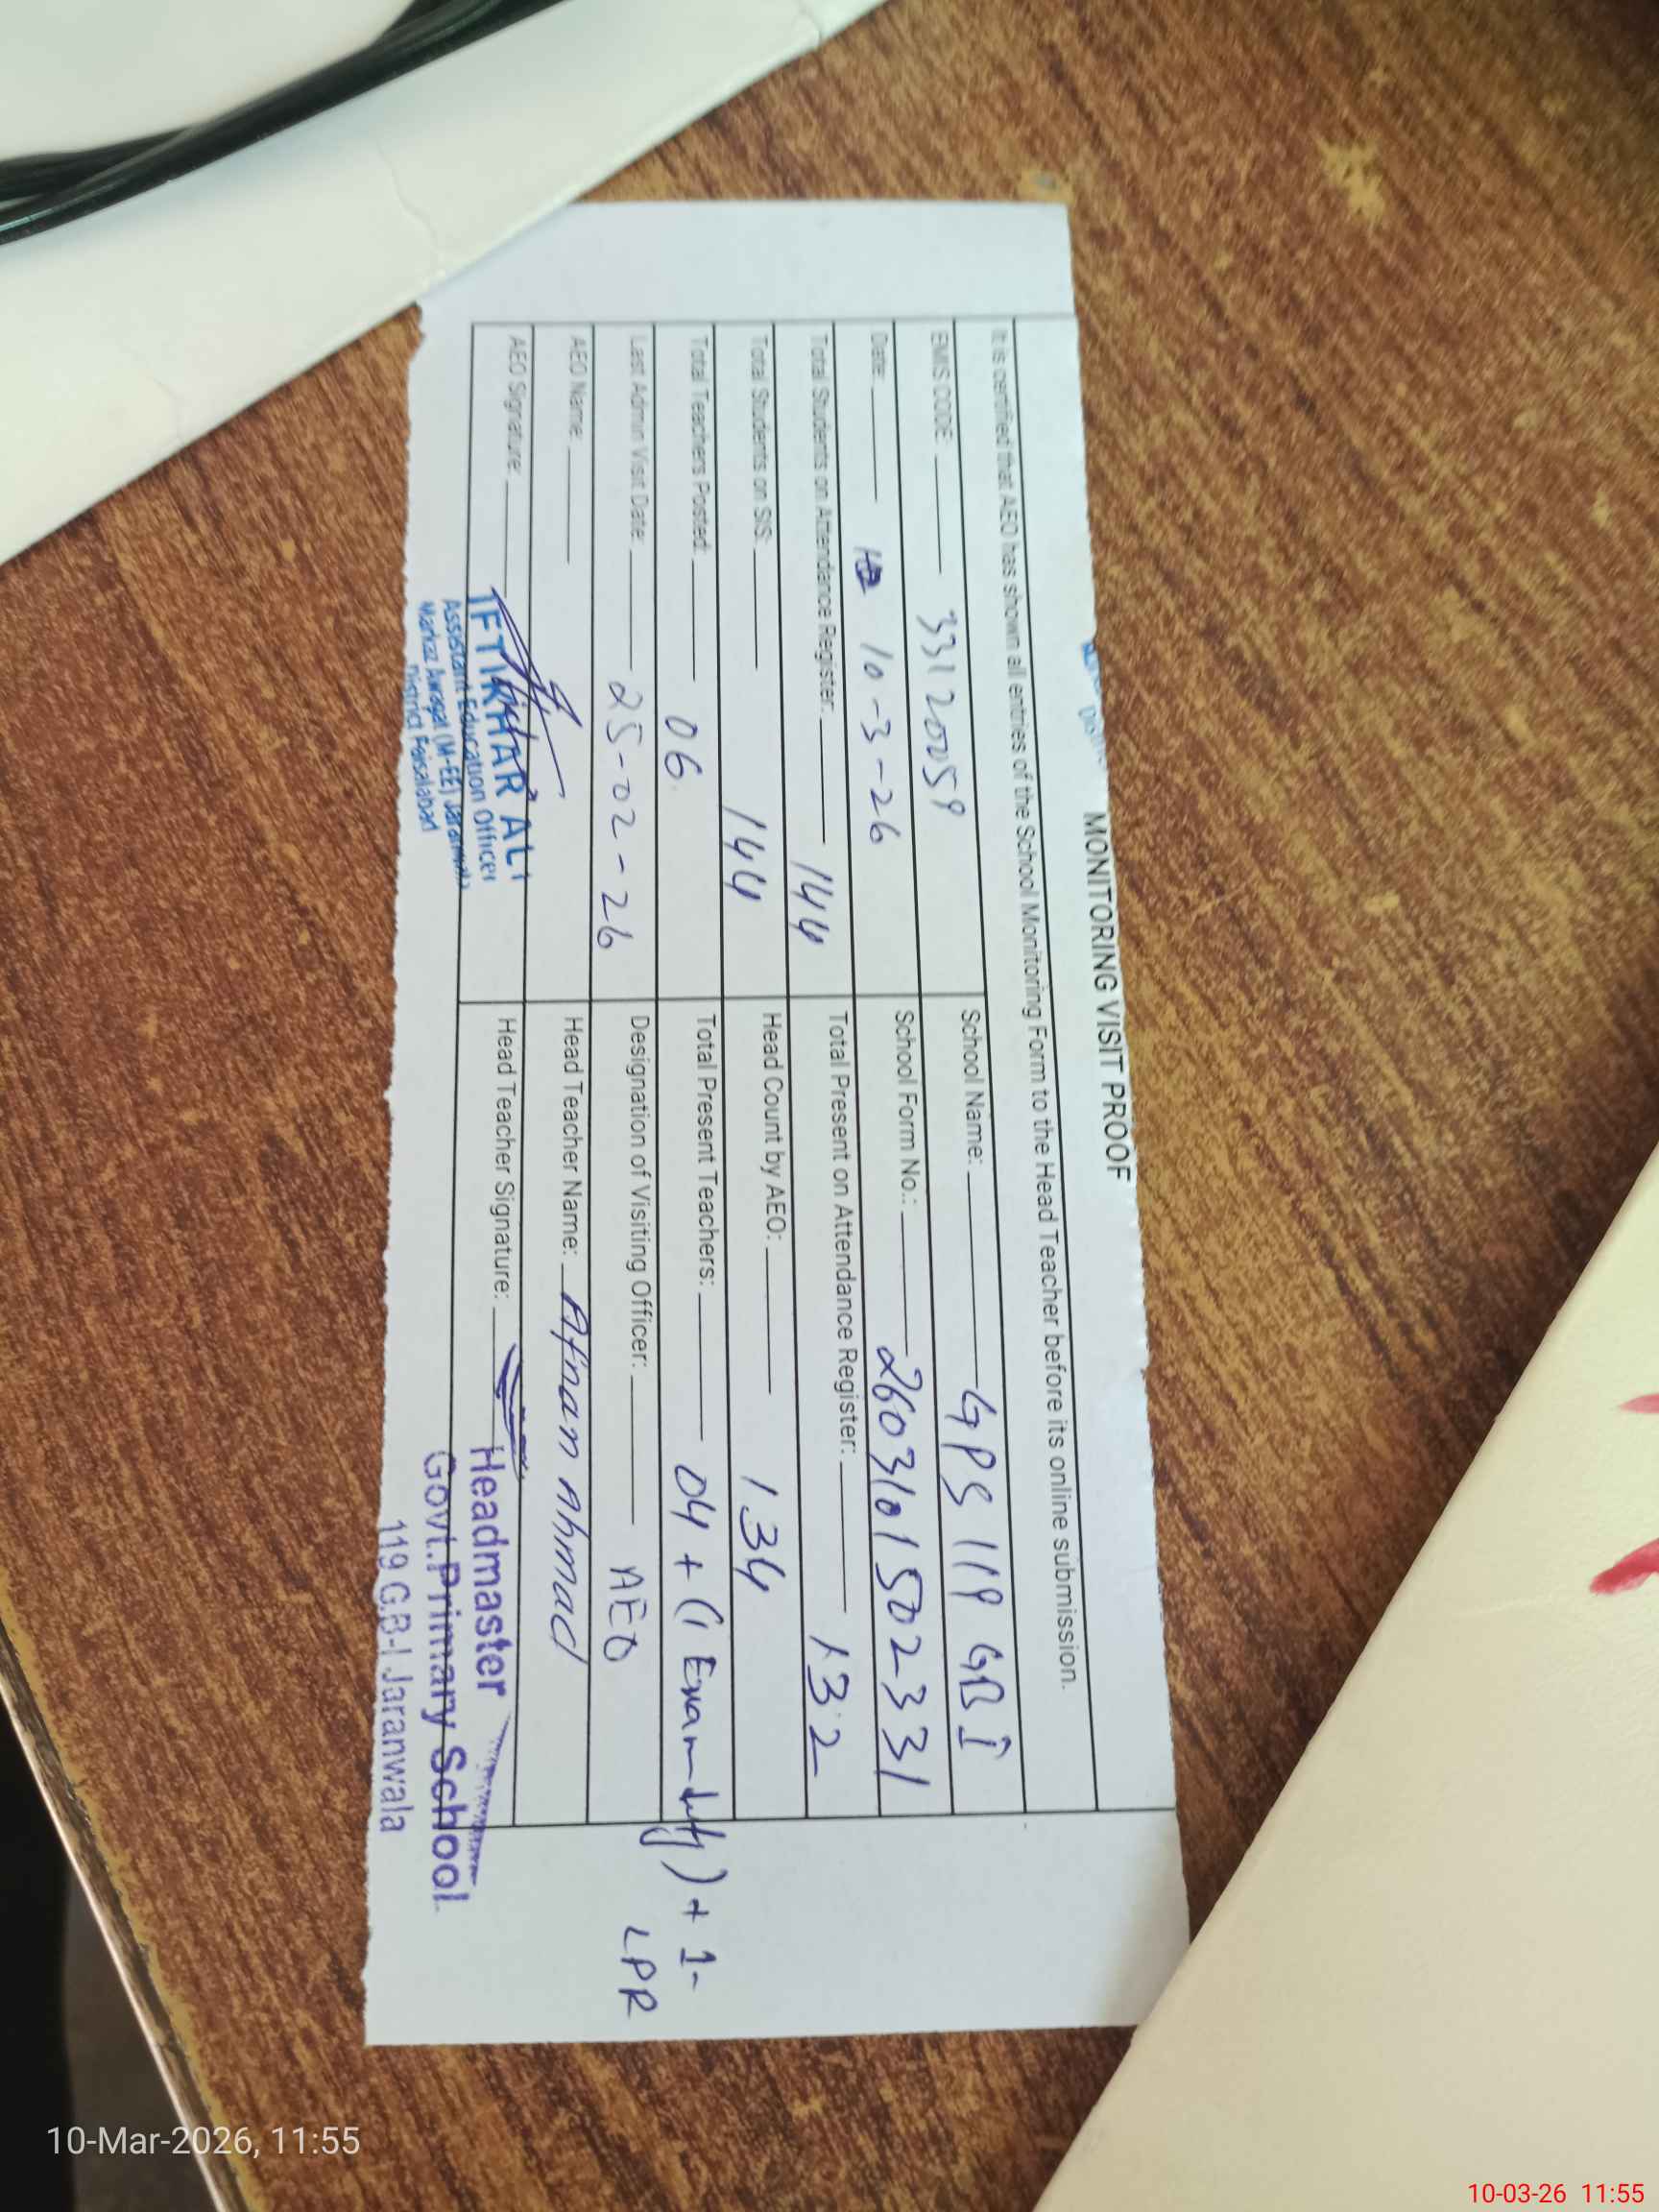 MONITORING VISIT PROOF
It is certified that AEO has shown all entries of the School Monitoring Form to the Head Teacher before its online submission.
EMIS CODE: 33120059 School Name: GPS 119 GB I
Date: 10-3-26 School Form No.: 2603101502331
Total Students on Attendance Register: 144 Total Present on Attendance Register: 132
Total Students on SIS: 144 Head Count by AEO: 134
Total Teachers Posted: 06 Total Present Teachers: 04 + (1 Exam duty) + 1-
LPR
Last Admin Visit Date: 25-02-26 Designation of Visiting Officer: AEO
AEO Name: Head Teacher Name: Afnan Ahmad
AEO Signature: Head Teacher Signature:
IFTIKHAR ALI
Assistant Education Officer
Markaz Awagat (M-EE) Jaranwala
District Faisalabad
Headmaster
Govt.Primary School
119 G.B-I Jaranwala
10-Mar-2026, 11:55
10-03-26 11:55